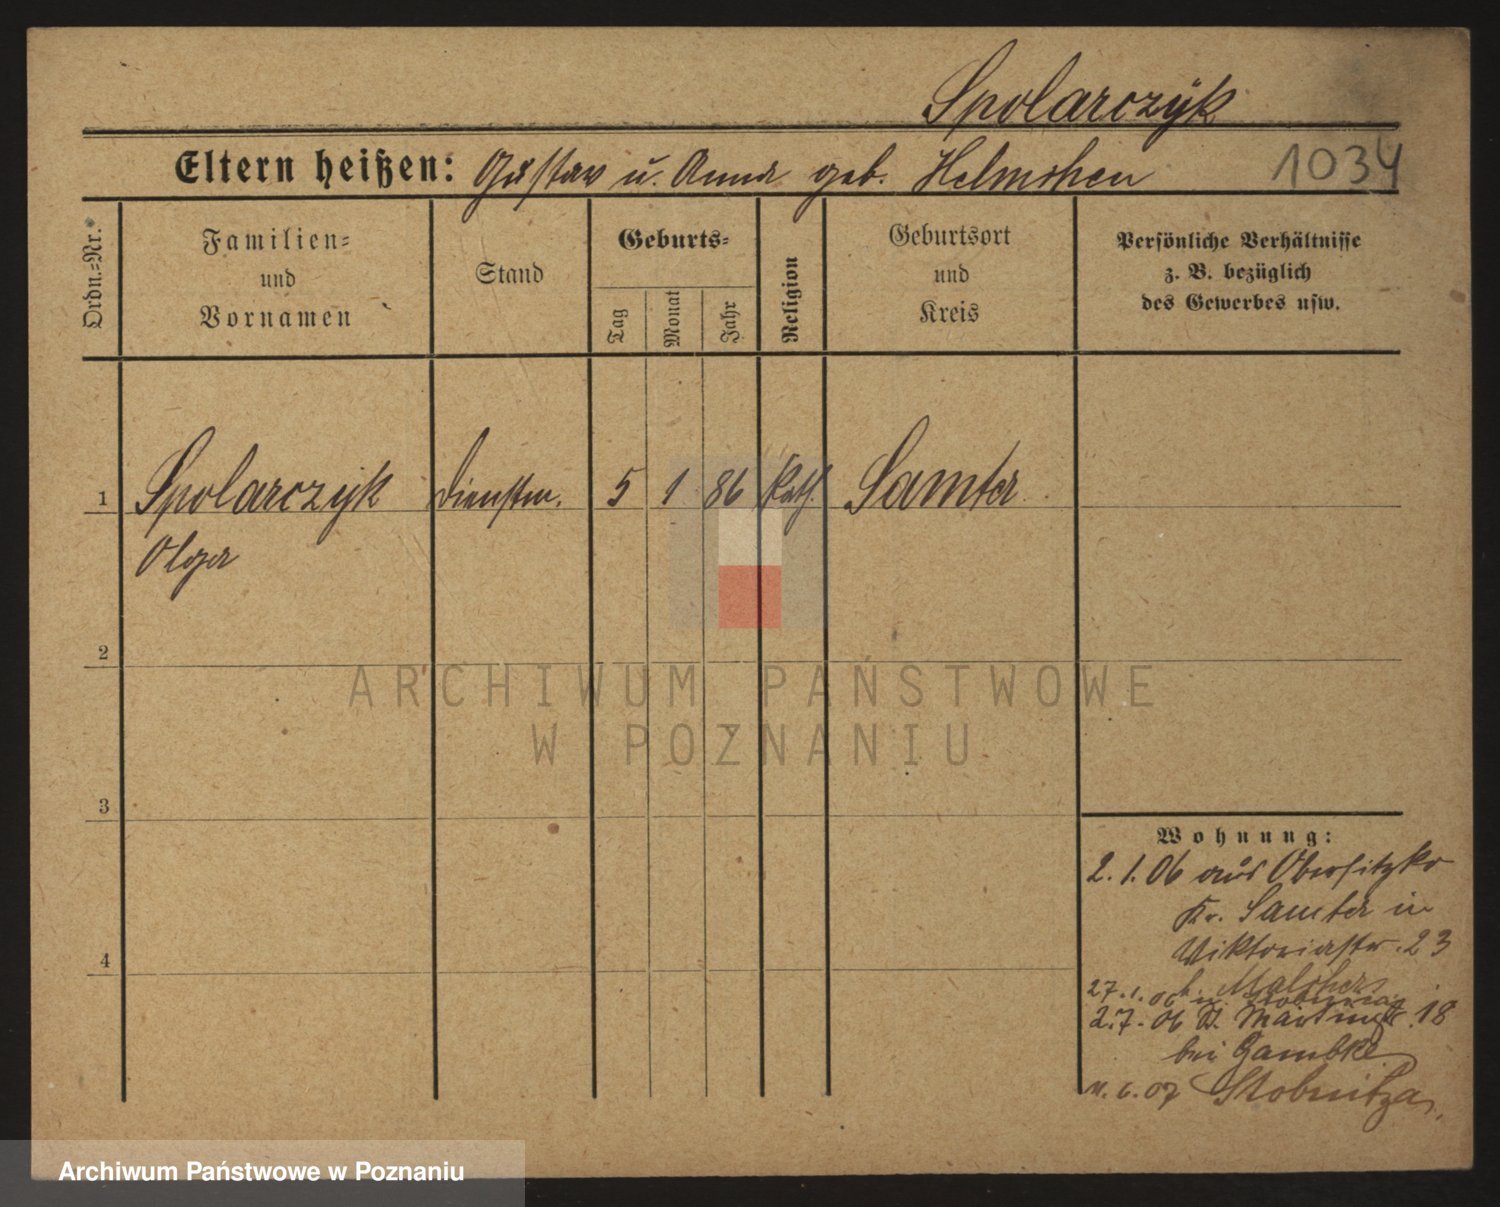 Spolarczÿk
Eltern heißen: Gustav u. Anna geb. Helmchen
1034
Ordn.-Nr.
Familien-
und
Vornamen
Stand
Geburts-
Tag
Monat
Jahr
Religion
Geburtsort
und
Kreis
Persönliche Verhältnisse
z. B. bezüglich
des Gewerbes usw.
1 Spolarczyk Dienstm. 5 1 86 kath. Samter
Olga
2
ARCHIWUM PAŃSTWOWE
W POZNANIU
3
Wohnung:
2. 1. 06 aus Obersitzko
Kr. Samter in
4
Viktoriastr. 23
b. Malchers
27. 1. 06 n.
2. 7. 06 St. Martinstr. 18
bei Gambke
6. 07 Stobnitza
Archiwum Państwowe w Poznaniu